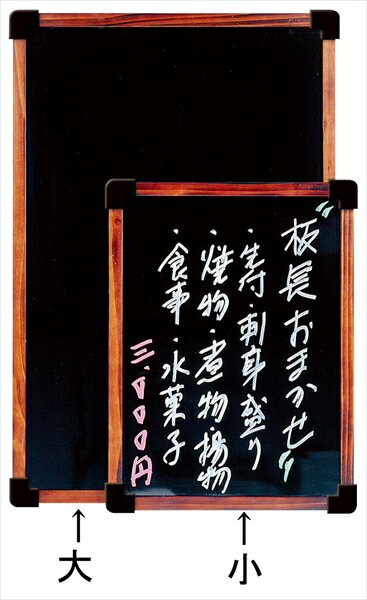 〝板長おまかせ〟
・先付・刺身盛り
・焼物・煮物・揚物
・食事・水菓子
三.〇〇〇円
↑
大
↑
小